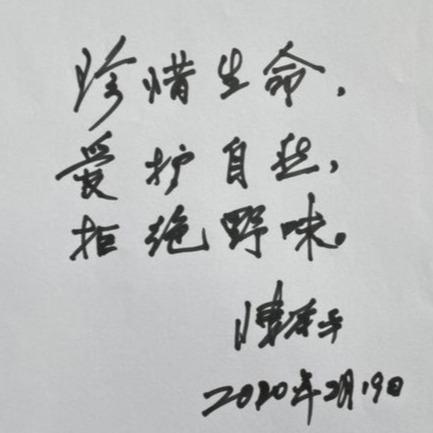 珍惜生命，
爱护自然，
拒绝野味。
2020年2月19日